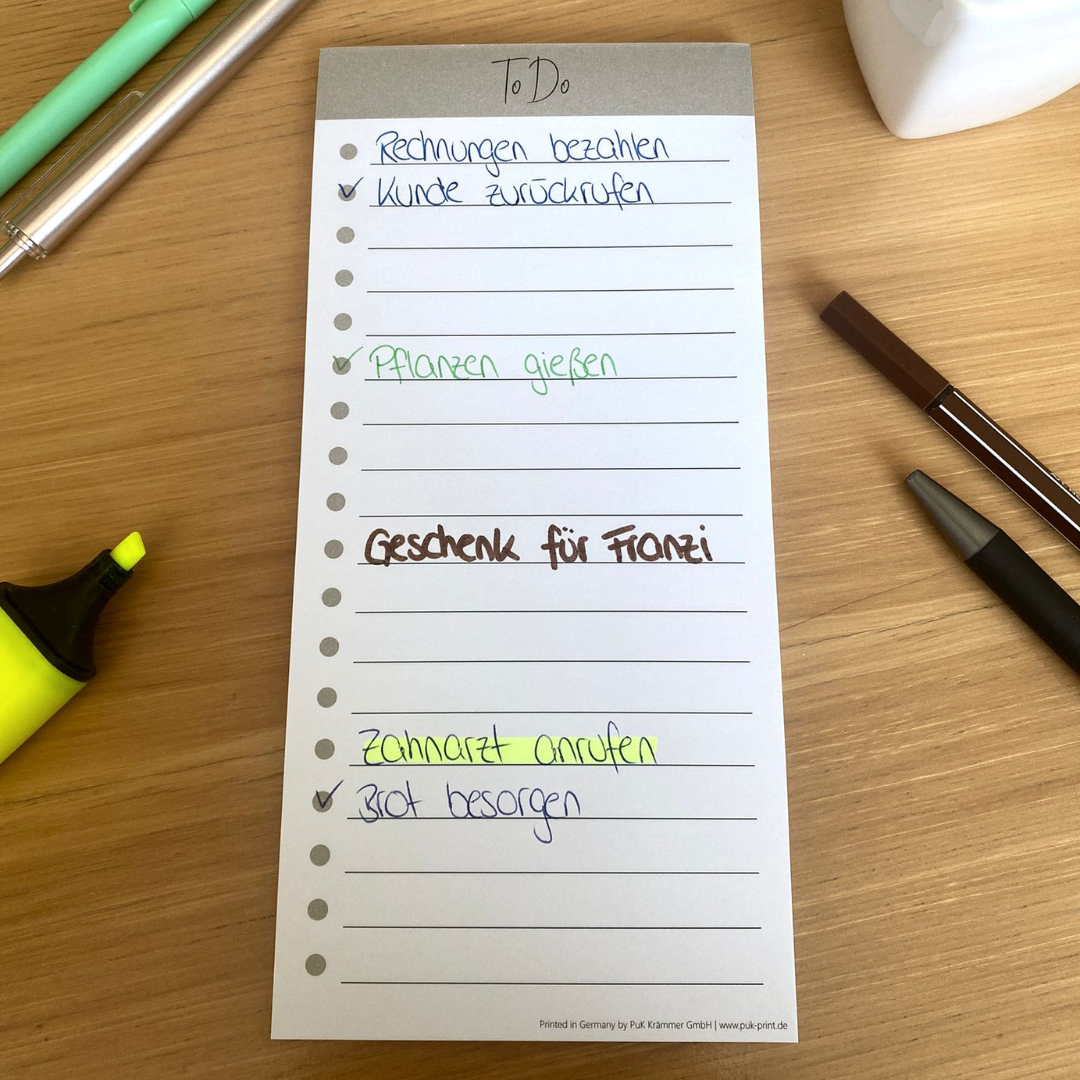 To Do
Rechnungen bezahlen
Kunde zurückrufen
Pflanzen gießen
Geschenk für Franzi
Zahnarzt anrufen
Brot besorgen
Printed in Germany by PuK Krämmer GmbH | www.puk-print.de